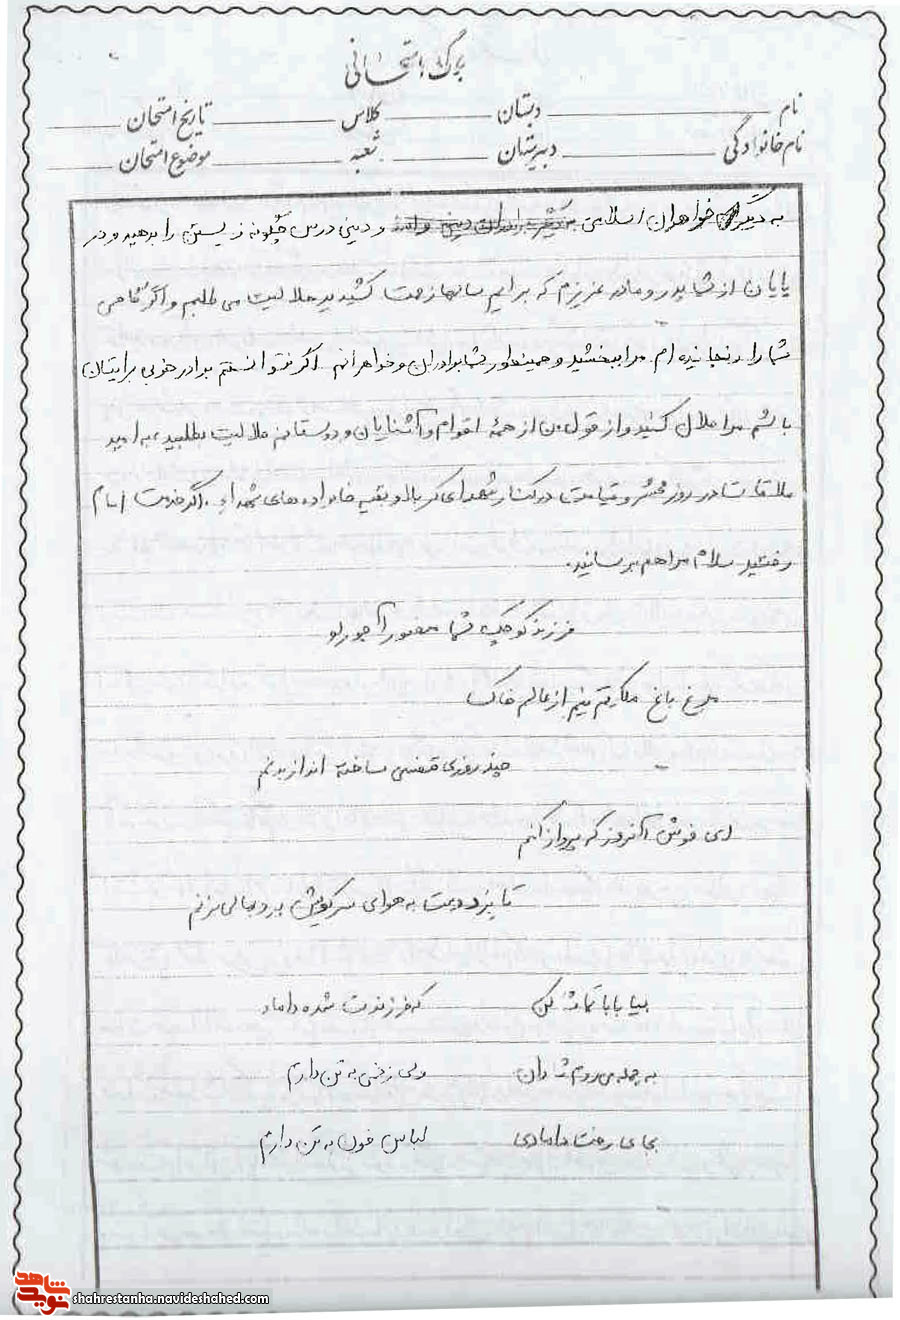 برگ امتحانی
نام دبستان کلاس تاریخ امتحان
نام خانوادگی دبیرستان شعبه موضوع امتحان
به دیگر خواهران اسلامی و دینی درس چگونه زیستن را بدهید و در
پایان از شما پدر و مادر عزیزم که برایم سالها زحمت کشیدید حلالیت می طلبم و اگر گاهی
شما را رنجانیده ام مرا ببخشید و همینطور شما برادران و خواهرانم اگر نتوانستم برادر خوبی برایتان
باشم مرا حلال کنید و از قول من از همهٔ اقوام و آشنایان و دوستانم حلالیت بطلبید، به امید
ملاقات در روز محشر و قیامت در کنار شهدای کربلا و بقیه خانواده های شهدا و . اگر خدمت امام
رفتید سلام مرا هم برسانید.
فرزند کوچک شما منصور آجورلو
مرغ باغ ملکوتم نیم از عالم خاک
چند روزی قفسی ساخته اند از بدنم
ای خوش آنروز که پرواز کنم
تا بزد دوست به هوای سر کویش پر و بالی بزنم
بیا بابا تماشا کن که فرزندت شده داماد
به حجله می روم شادان ولی زخمی به تن دارم
بجای رخت دامادی لباس خون به تن دارم
شاهد
نوید
shahrestanha.navideshahed.com